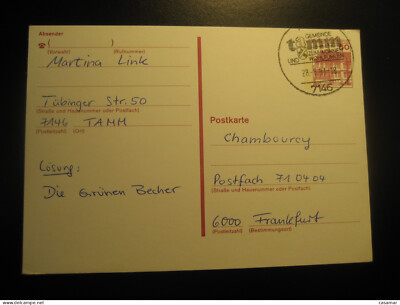 Absender
(Vorwahl) (Rufnummer)
Martina Link
Tübinger Str. 50
(Straße und Hausnummer oder Postfach)
7146 TAMM
(Postleitzahl) (Ort)
Lösung:
Die Grünen Becher
GEMEINDE
tamm
60
7146
Postkarte
Chambourcy
Postfach 71 04 04
(Straße und Hausnummer oder Postfach)
6000 Frankfurt
(Postleitzahl) (Bestimmungsort)